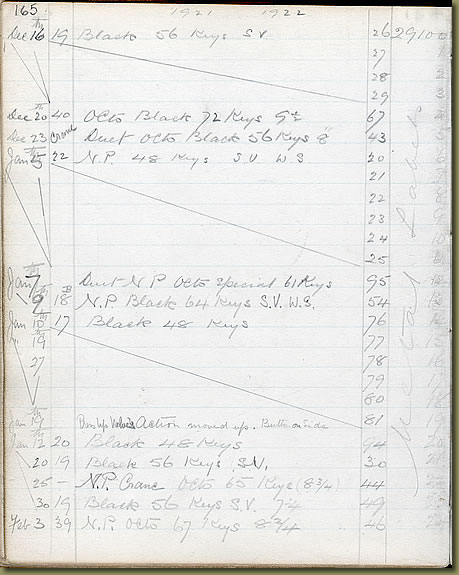 165 1921 1922
Dec 16th 19 Black 56 Keys S.V. 26 29100
27
28
29
Dec 20th 40 Octo Black 72 Keys 9¾ 67
Dec 23 Crane Duet Octo Black 56 Keys 8" 43
Jan 5th 22 N.P. 48 Keys S.V. W.S 20
21
22
23
24
25
Jan 7th Duet N P Octo special 61 Keys 95
9 18 N.P Black 64 Keys S.V. W.S. 54
Jan 17 Black 48 Keys 76
19 77
27 78
79
80
Jan 19th Action moved up. Button on side 81
Jan 12 20 Black 48 Keys 94
20 19 Black 56 Keys S.V. 30
25 - N.P. Crane Octo 65 Keys (8 3/4) 44
30 19 Black 56 Keys S.V. 49
Feb 3 39 N.P. Octo 67 Keys 8 3/4 46
Metal Labels